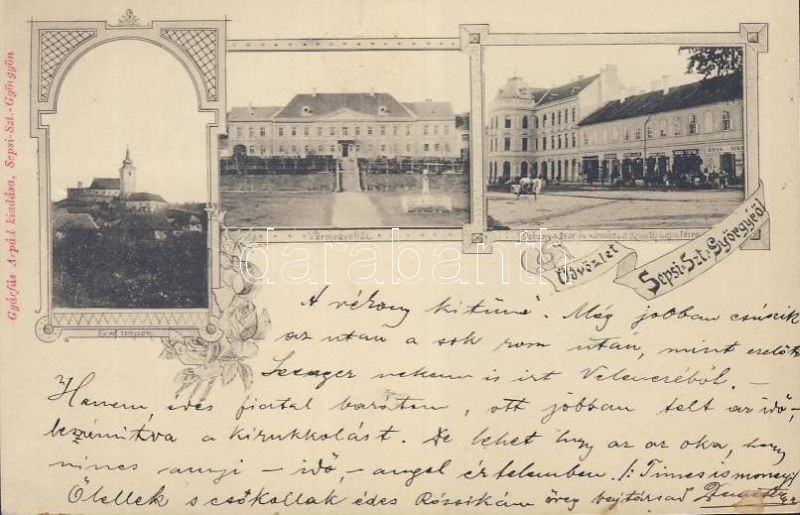 Gyárfás Árpád kiadása, Sepsi-Szt.-György
Vármegyeház
Üdvözlet
Sepsi-Szt-Györgyről
darabanth
A vékony kitünő. Még jobban csúszik
az után a sok rom után, mint ezelőtt
nekem is irt Velenczéből. –
Hanem, édes fiatal barátom, ott jobban telt az idő,
beszámitva a kirukkolást. De lehet hogy az az oka, hogy
nincs annyi – idő, – angol értelemben. /: Time is money :/
Ölellek s csókollak édes öreg bajtársad